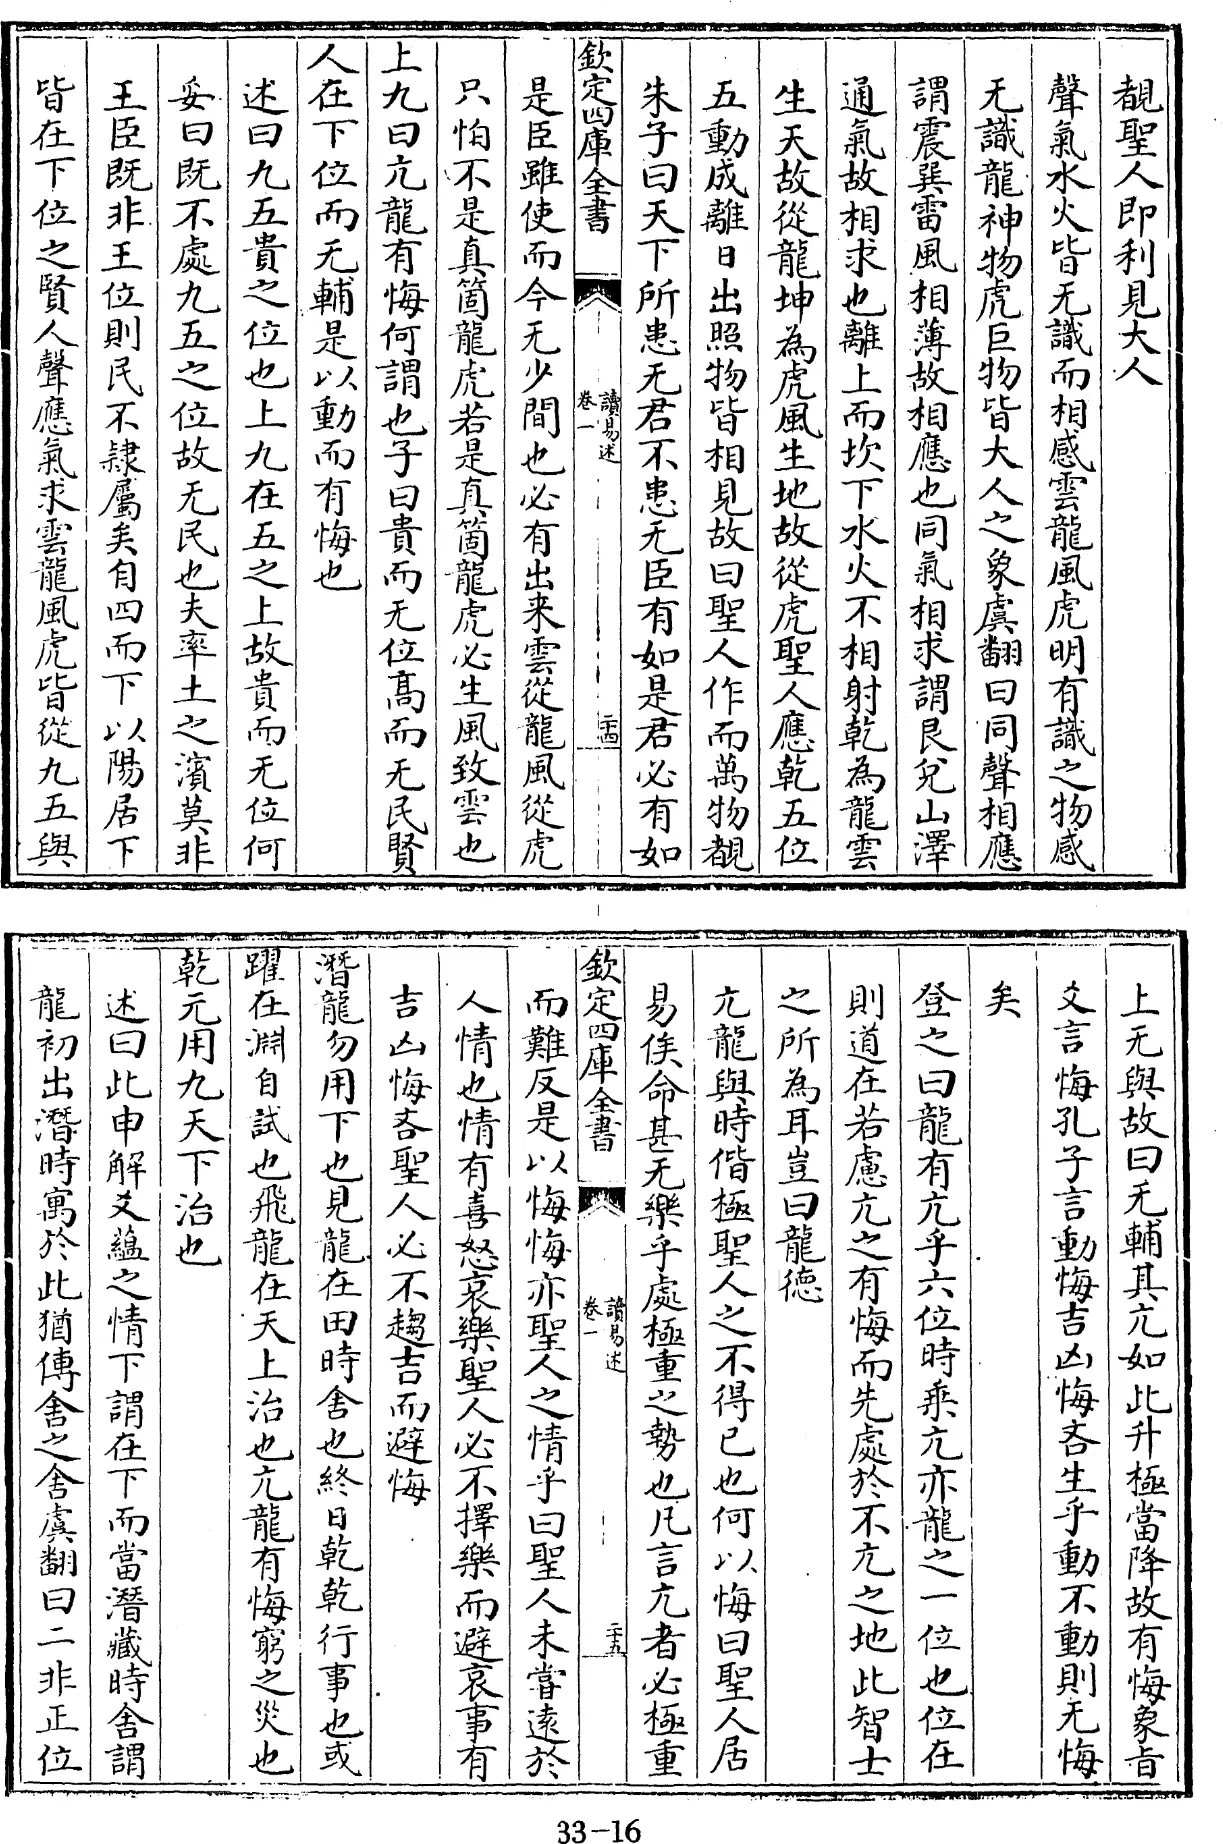 覩聖人即利見大人
聲氣水火皆无識而相感雲龍風虎明有識之物感
无識龍神物虎巨物皆大人之象虞翻曰同聲相應
謂震巽雷風相薄故相應也同氣相求謂艮兌山澤
通氣故相求也離上而坎下水火不相射乾為龍雲
生天故從龍坤為虎風生地故從虎聖人應乾五位
五動成離日出照物皆相見故曰聖人作而萬物覩
朱子曰天下所患无君不患无臣有如是君必有如
欽定四庫全書
讀易述
卷一
二十四
是臣雖使而今无少間也必有出来雲從龍風從虎
只怕不是真箇龍虎若是真箇龍虎必生風致雲也
上九曰亢龍有悔何謂也子曰貴而无位髙而无民賢
人在下位而无輔是以動而有悔也
述曰九五貴之位也上九在五之上故貴而无位何
妥曰既不處九五之位故无民也夫率土之濱莫非
王臣既非王位則民不隸屬矣自四而下以陽居下
皆在下位之賢人聲應氣求雲龍風虎皆從九五與
上无與故曰无輔其亢如此升極當降故有悔象旨
爻言悔孔子言動悔吉凶悔吝生乎動不動則无悔
矣
登之曰龍有亢乎六位時乘亢亦龍之一位也位在
則道在若慮亢之有悔而先處於不亢之地此智士
之所為耳豈曰龍徳
亢龍與時偕極聖人之不得已也何以悔曰聖人居
易俟命甚无樂乎處極重之勢也凡言亢者必極重
欽定四庫全書
讀易述
卷一
二十五
而難反是以悔悔亦聖人之情乎曰聖人未甞逺於
人情也情有喜怒哀樂聖人必不擇樂而避哀事有
吉凶悔吝聖人必不趨吉而避悔
潛龍勿用下也見龍在田時舍也終日乾乾行事也或
躍在淵自試也飛龍在天上治也亢龍有悔窮之災也
乾元用九天下治也
述曰此申解爻蘊之情下謂在下而當潛藏時舍謂
龍初出潛時寓於此猶傳舍之舍虞翻曰二非正位
33-16